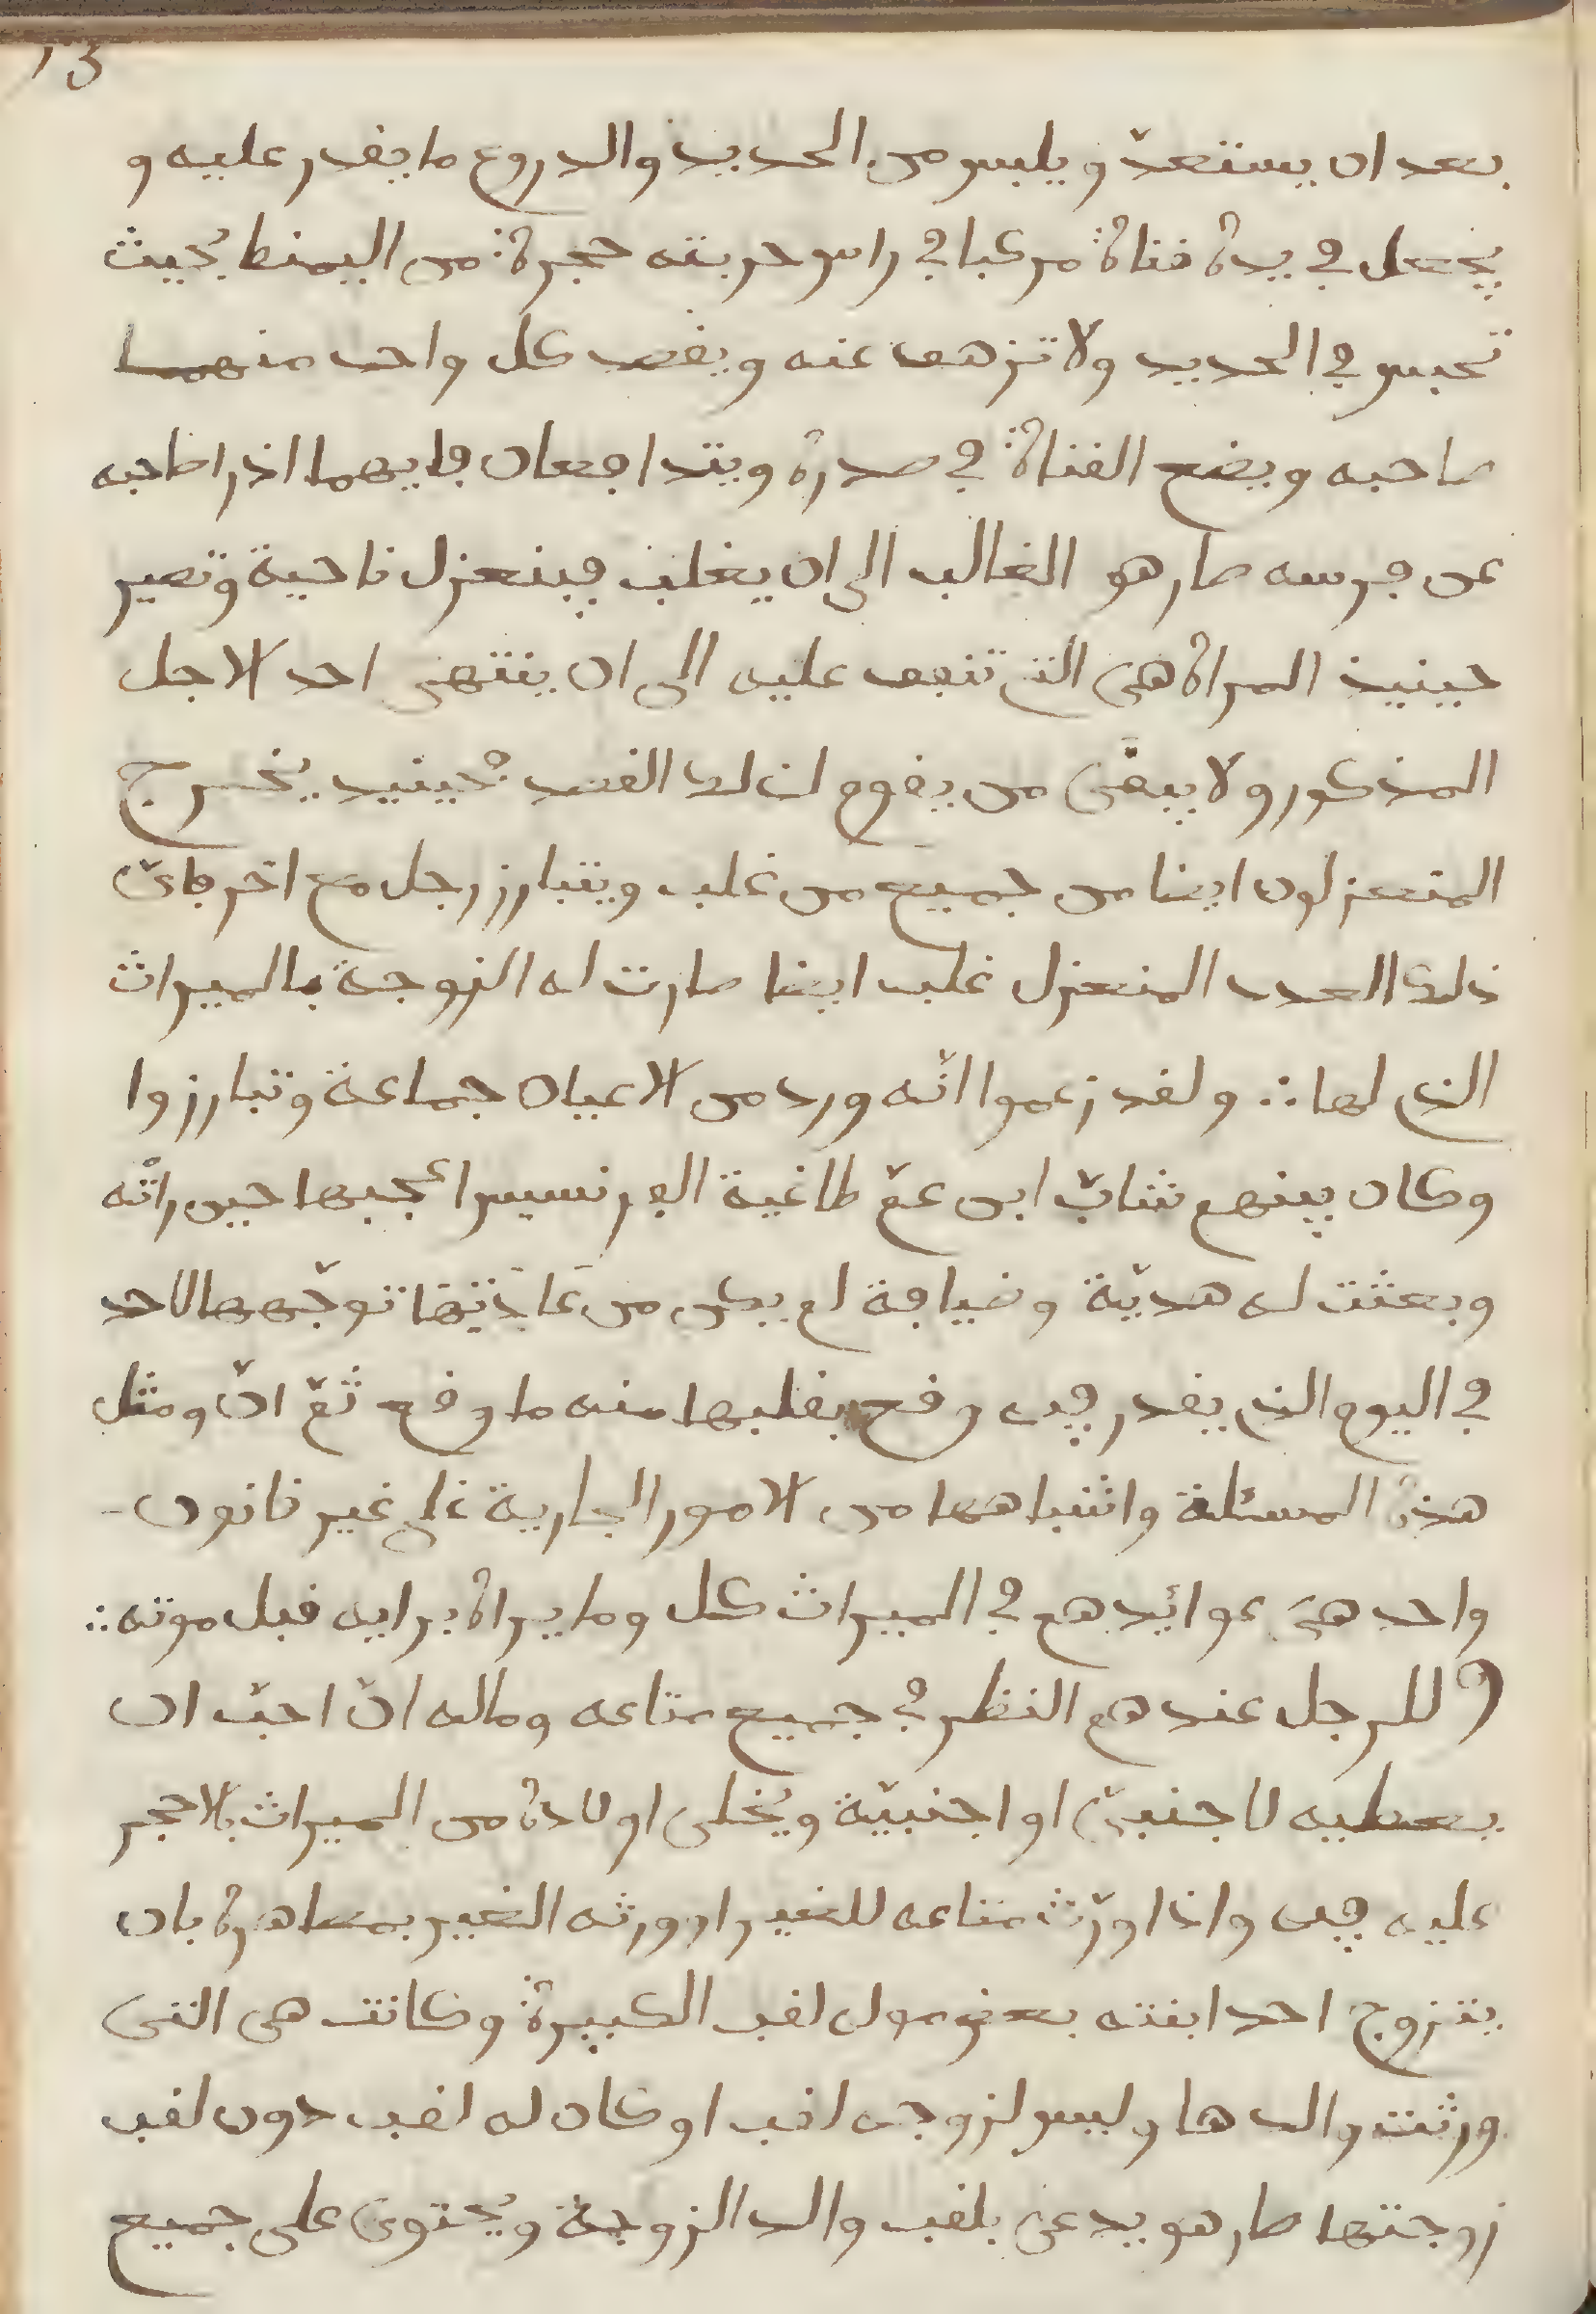 13
بعد ان يستعدّ ويلبس من الحديد والدروع ما يقدر عليه و
يجعل في يده قناة مركبا في راس حربته حجرة من اليمنط بحيث
تحبس في الحديد ولا تزهف عنه ويقصد كل واحد منهما
صاحبه ويضع القناة في صدره ويتدافعان فايهما اذرا صاحبه
عن فرسه صار هو الغالب الى ان يغلب فينعزل ناحية وتصير
حينيذ المراة هي التي تنفف عليه الى ان ينتهي احد الاجل
المذكور ولا يبقى من يقوم لذلك القصد فحينيد يخرج
المنعزلون ايضا من جميع من غلب ويتبارز رجل مع اخر فايّ
ذلك العدد المنعزل غلب ايضا صارت له الزوجة بالميراث
الذي لها ∴ ولقد زعموا انّه ورد من الاعيان جماعة وتبارزوا
وكان بينهم شابّ ابن عمّ طاغية الفرنسيس اعجبها حين راتْه
وبعثت له هديّة وضيافة لم يكن من عَادَتِهَا توجّهها لاحد
في اليوم الذي يقدر فيه وقع بقلبها منه ما وقع ثمّ انّ ومثل
هذه المسئلة واشباهها من الامور الجارية على غير قانون -
واحد هي عوائدهم في الميراث كل وما يراه برايه قبل موته ∴
و للرجل عندهم النظر في جميع متاعه وماله انّ احبّ ان
يعطيه لاجنبيّ او اجنبيّة ويُخلى اولاده من الميراث بلا حجر
عليه فيه واذا ورّث متاعه للغير او ورثه الغير بمصاهرة بان
يتزوج احد ابنته بعض مول لقب الكبيرة وكانت هي التي
ورثت والدها وليس لزوجه لقب او كان له لقب دون لقب
زوجتها صار هو يدعى بلقب والد الزوجة ويُحتوي على جميع